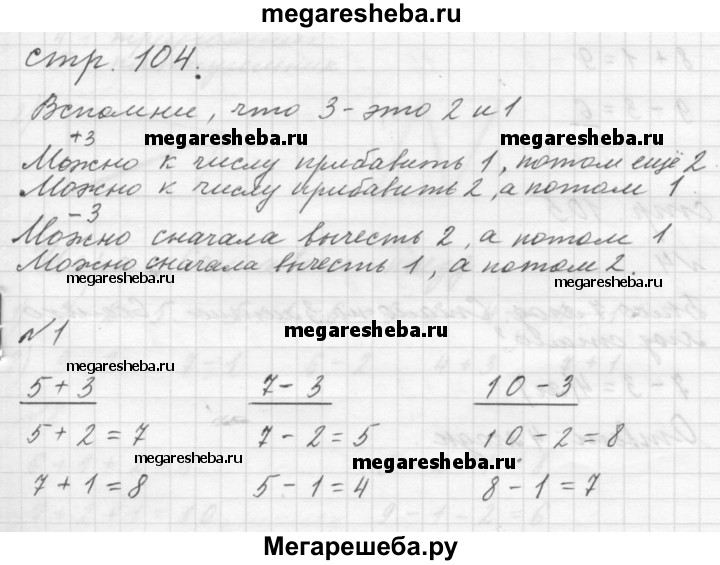 megaresheba.ru
стр. 104.
Вспомни, что 3 - это 2 и 1
+3
megaresheba.ru megaresheba.ru
Можно к числу прибавить 1, потом ещё 2
Можно к числу прибавить 2, а потом 1
- 3
Можно сначала вычесть 2, а потом 1
Можно сначала вычесть 1, а потом 2.
megaresheba.ru
megaresheba.ru
№1
megaresheba.ru
5 + 3 7 - 3 10 - 3
megaresheba.ru
5 + 2 = 7 7 - 2 = 5 10 - 2 = 8
megaresheba.ru megaresheba.ru
7 + 1 = 8 5 - 1 = 4 8 - 1 = 7
Мегарешеба.ру